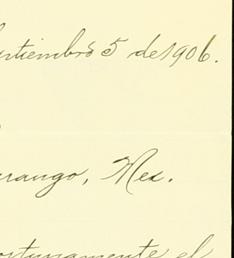 eptiembre 5 de 1906.
urango, Mex.
ortunamente el